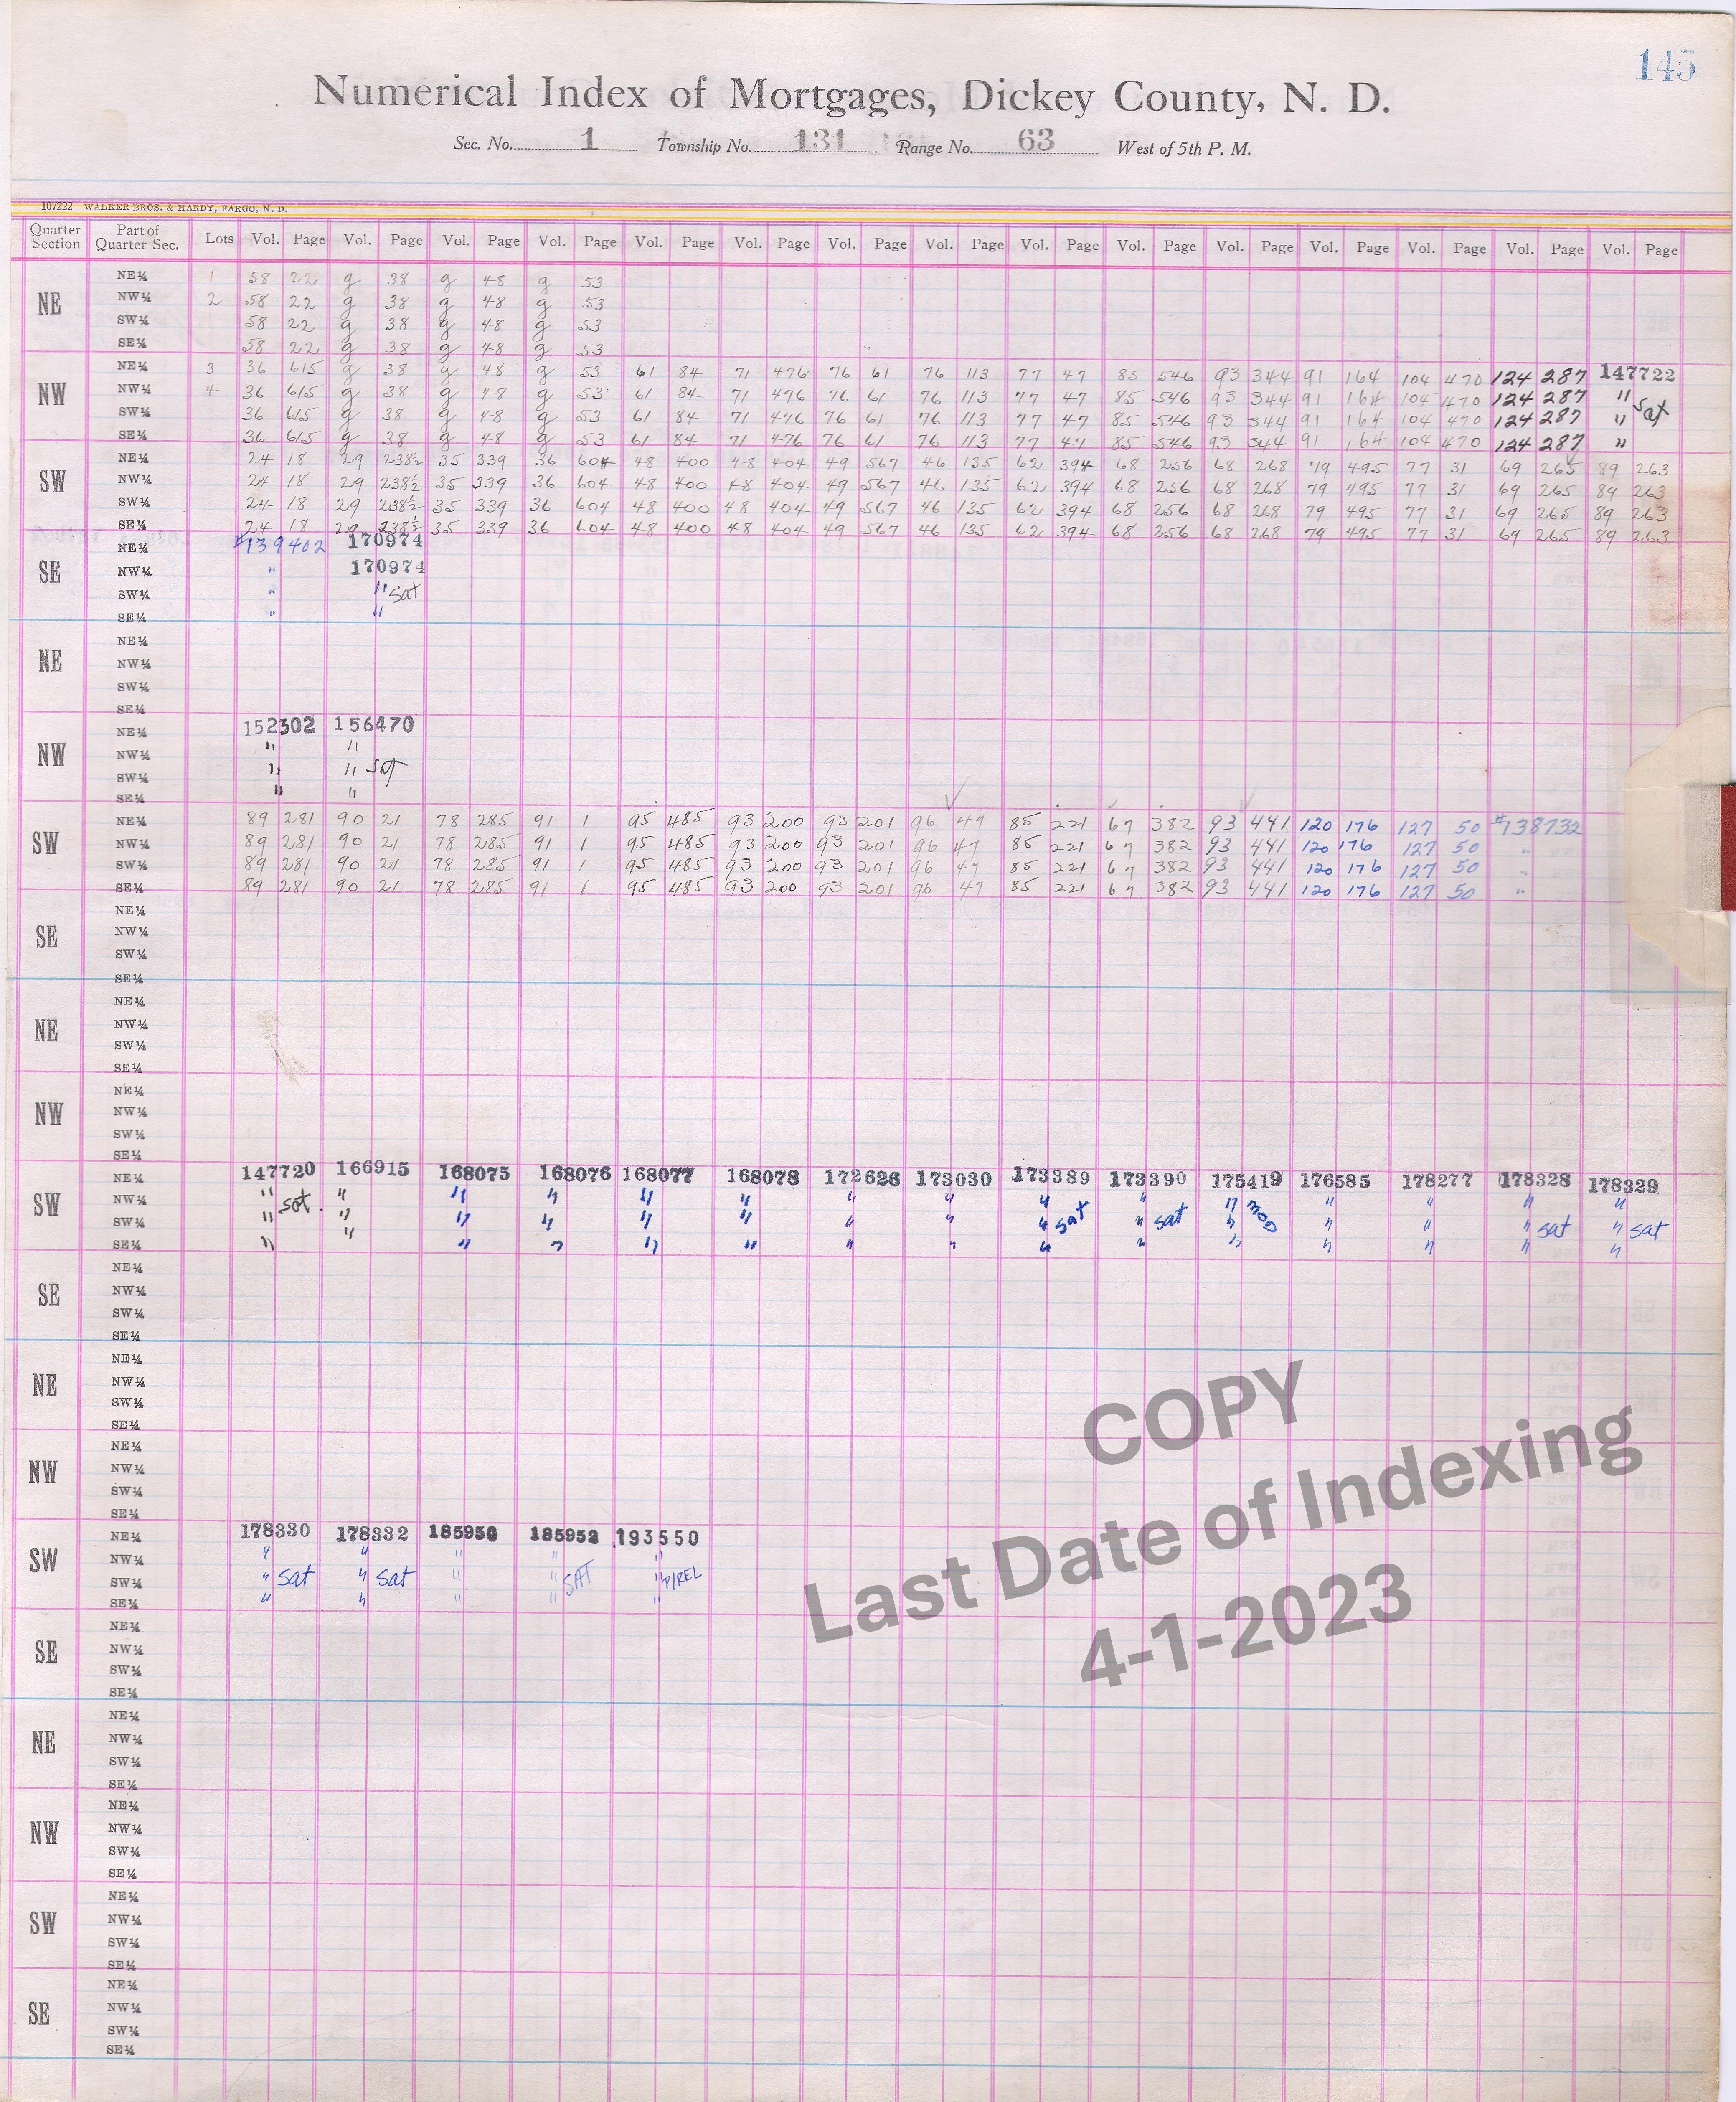 145
Numerical Index of Mortgages, Dickey County, N. D.
Sec. No. 1 Township No. 131 Range No. 63 West of 5th P. M.
107222 WALKER BROS. & HARDY, FARGO, N. D.
Quarter Section Part of Quarter Sec. Lots Vol. Page Vol. Page Vol. Page Vol. Page Vol. Page Vol. Page Vol. Page Vol. Page Vol. Page Vol. Page Vol. Page Vol. Page Vol. Page Vol. Page Vol. Page
NE
NE¼ 1 58 22 g 38 g 48 g 53
NW¼ 2 58 22 g 38 g 48 g 53
SW¼ 58 22 g 38 g 48 g 53
SE¼ 58 22 g 38 g 48 g 53
NW
NE¼ 3 36 615 g 38 g 48 g 53 61 84 71 476 76 61 76 113 77 47 85 546 93 344 91 164 104 470 124 287 147722
NW¼ 4 36 615 g 38 g 48 g 53 61 84 71 476 76 61 76 113 77 47 85 546 93 344 91 164 104 470 124 287 "
SW¼ 36 615 g 38 g 48 g 53 61 84 71 476 76 61 76 113 77 47 85 546 93 344 91 164 104 470 124 287 " sat
SE¼ 36 615 g 38 g 48 g 53 61 84 71 476 76 61 76 113 77 47 85 546 93 344 91 164 104 470 124 287 "
SW
NE¼ 24 18 29 238½ 35 339 36 604 48 400 48 404 49 567 46 135 62 394 68 256 68 268 79 495 77 31 69 265 89 263
NW¼ 24 18 29 238½ 35 339 36 604 48 400 48 404 49 567 46 135 62 394 68 256 68 268 79 495 77 31 69 265 89 263
SW¼ 24 18 29 238½ 35 339 36 604 48 400 48 404 49 567 46 135 62 394 68 256 68 268 79 495 77 31 69 265 89 263
SE¼ 24 18 29 238½ 35 339 36 604 48 400 48 404 49 567 46 135 62 394 68 256 68 268 79 495 77 31 69 265 89 263
SE
NE¼ #139402 170974
NW¼ " 170974
SW¼ " " sat
SE¼ " "
NE
NE¼
NW¼
SW¼
SE¼
NW
NE¼ 152302 156470
NW¼ " "
SW¼ " " sat
SE¼ " "
SW
NE¼ 89 281 90 21 78 285 91 1 95 485 93 200 93 201 96 47 85 221 67 382 93 441 120 176 127 50 #138732
NW¼ 89 281 90 21 78 285 91 1 95 485 93 200 93 201 96 47 85 221 67 382 93 441 120 176 127 50 "
SW¼ 89 281 90 21 78 285 91 1 95 485 93 200 93 201 96 47 85 221 67 382 93 441 120 176 127 50 "
SE¼ 89 281 90 21 78 285 91 1 95 485 93 200 93 201 96 47 85 221 67 382 93 441 120 176 127 50 "
SE
NE¼
NW¼
SW¼
SE¼
NE
NE¼
NW¼
SW¼
SE¼
NW
NE¼
NW¼
SW¼
SE¼
SW
NE¼ 147720 166915 168075 168076 168077 168078 172626 173030 173389 173390 175419 176585 178277 178328 178329
NW¼ " sat. " " " " " " " " " " mod " " " "
SW¼ " " " " " " " " " sat " sat " " " " sat " sat
SE¼ " " " " " " " " " " " " " " "
SE
NE¼
NW¼
SW¼
SE¼
NE
NE¼
NW¼
SW¼
SE¼
NW
NE¼
NW¼
SW¼
SE¼
SW
NE¼ 178330 178332 185950 185952 193550
NW¼ " " " " "
SW¼ " sat " sat " " SAT " P/REL
SE¼ " " " " "
SE
NE¼
NW¼
SW¼
SE¼
NE
NE¼
NW¼
SW¼
SE¼
NW
NE¼
NW¼
SW¼
SE¼
SW
NE¼
NW¼
SW¼
SE¼
SE
NE¼
NW¼
SW¼
SE¼
COPY
Last Date of Indexing
4-1-2023